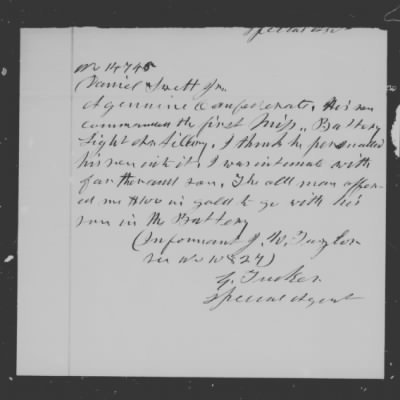 Special Agent
No 14745
Daniel Swett Sr.
A genuine Confederate, his son
commanded the first Miss. Battery
Light Artillery, I think he persuaded
his son into it, I was intimate with
father and son, The old man offer-
ed me $100 in gold to go with his
son in the Battery
(Informant J. W. Taylor
see No 10827)
G. Tucker
Special Agent